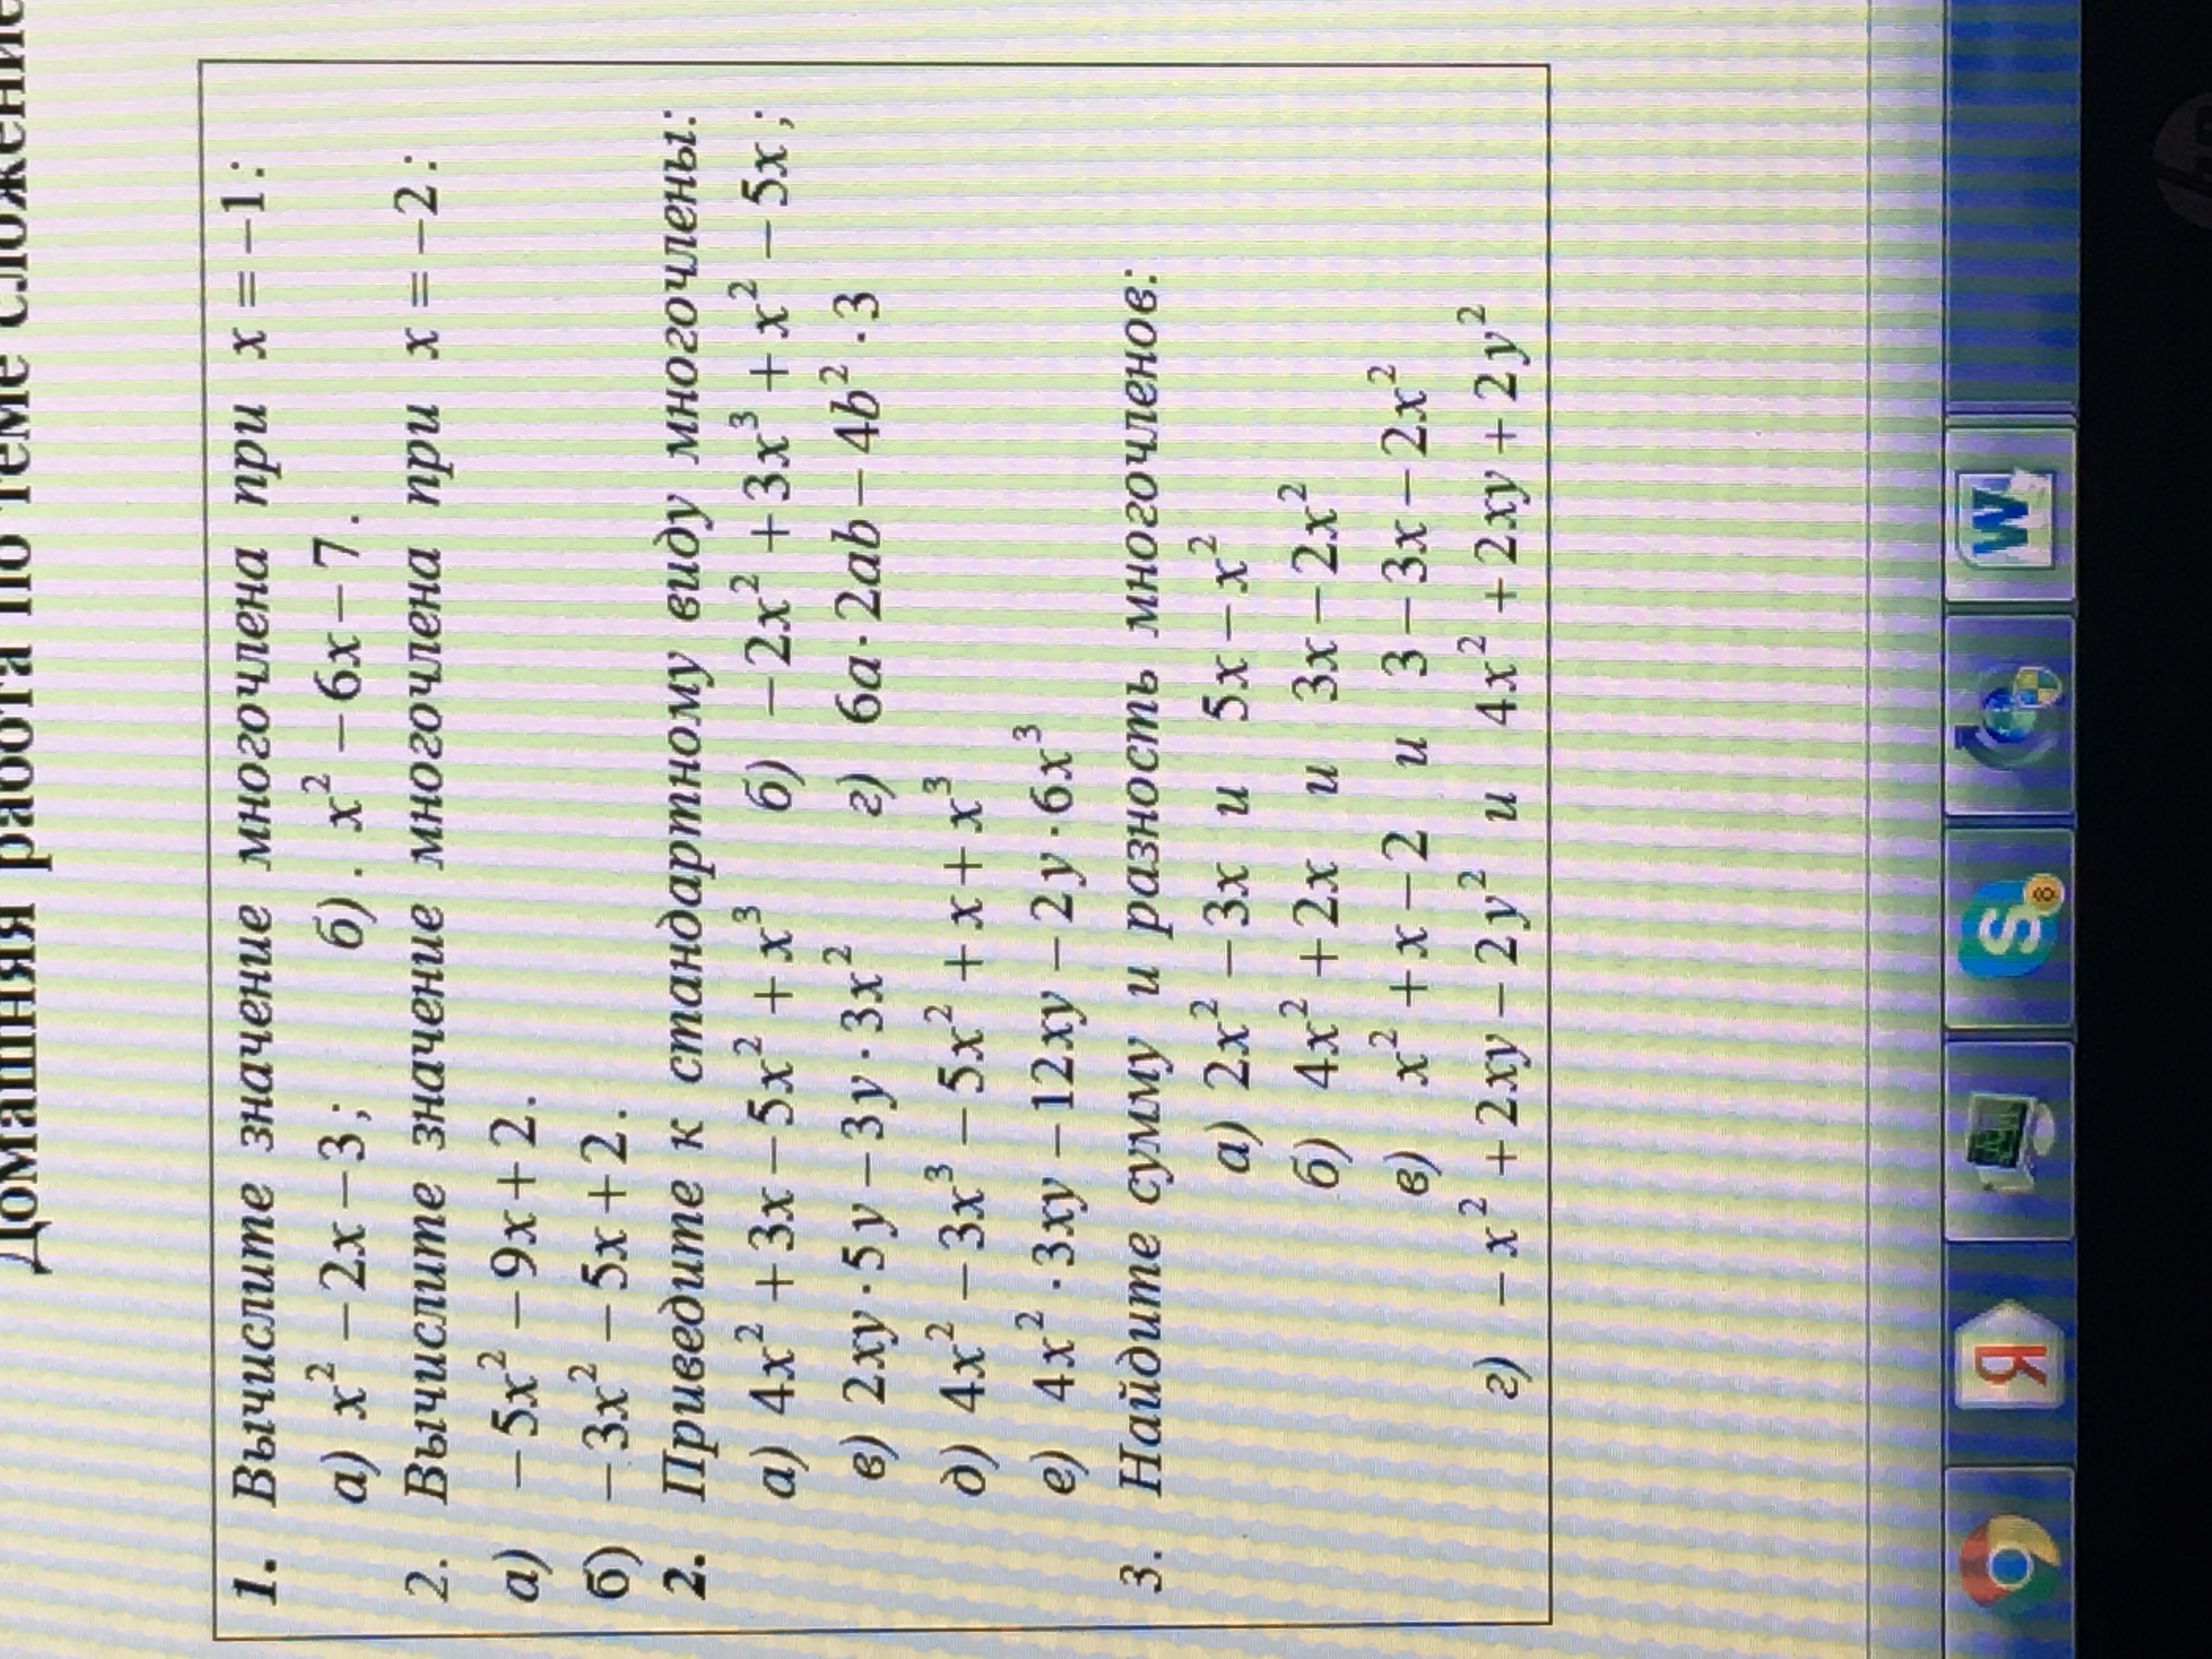 Домашняя работа по теме сложение
1. Вычислите значение многочлена при x = −1:
а) x² − 2x − 3; б) . x² − 6x − 7 .
2. Вычислите значение многочлена при x = −2:
а) − 5x² − 9x + 2.
б) − 3x² − 5x + 2.
2. Приведите к стандартному виду многочлены:
а) 4x² + 3x − 5x² + x³ б) − 2x² + 3x³ + x² − 5x;
в) 2xy · 5y − 3y · 3x² г) 6a · 2ab − 4b² · 3
д) 4x² − 3x³ − 5x² + x + x³
е) 4x² · 3xy − 12xy − 2y · 6x³
3. Найдите сумму и разность многочленов:
а) 2x² − 3x и 5x − x²
б) 4x² + 2x и 3x − 2x²
в) x² + x − 2 и 3 − 3x − 2x²
г) − x² + 2xy − 2y² и 4x² + 2xy + 2y²
Я
S
8
W